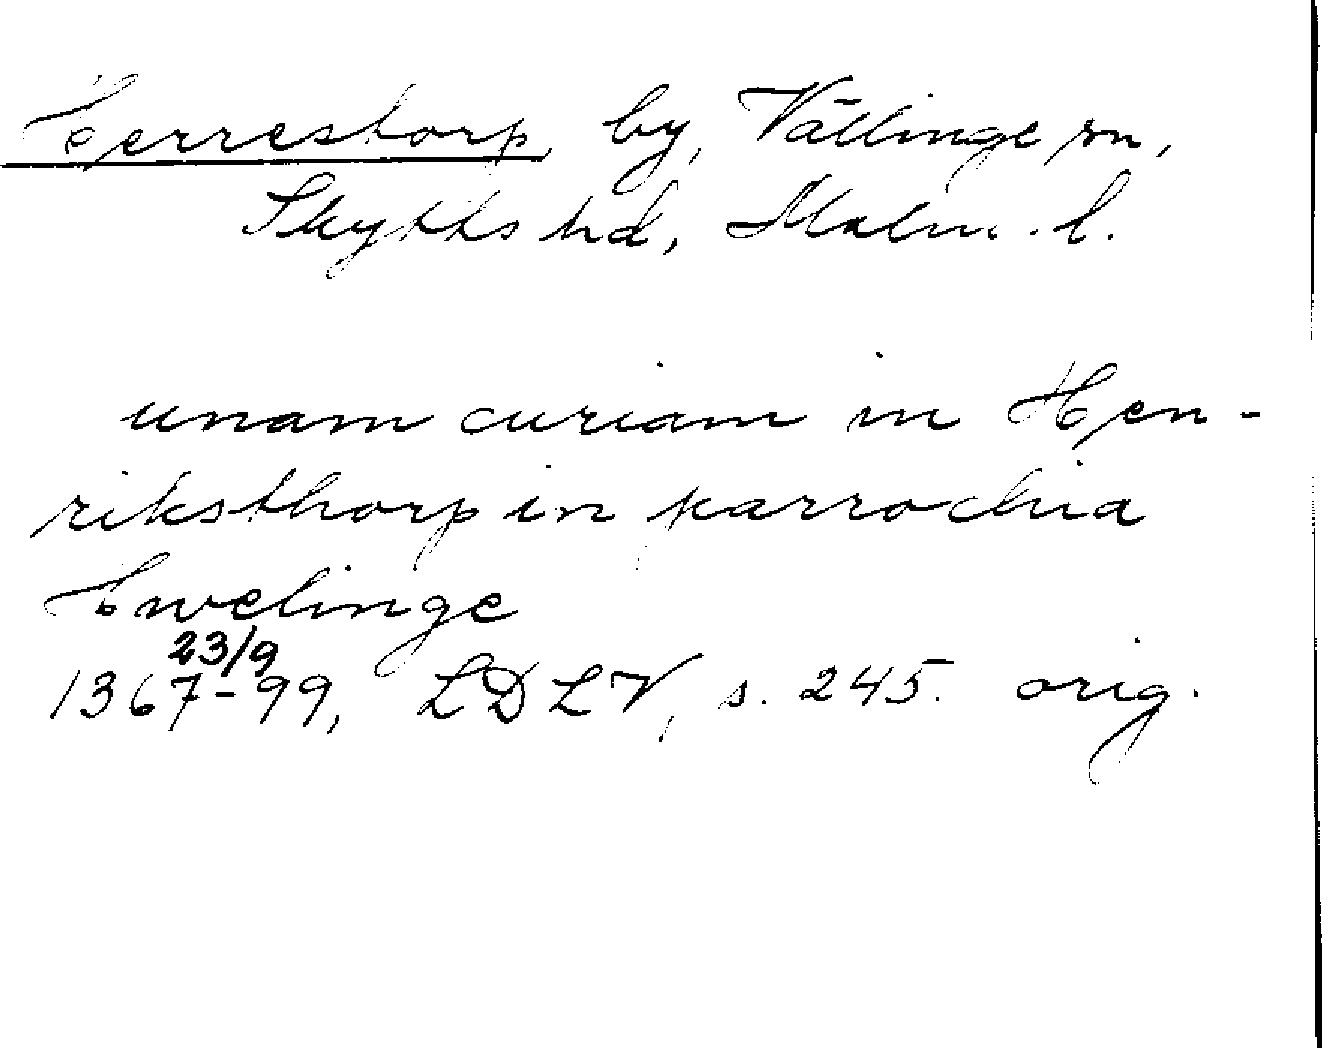 Herrestorp, by, Vällinge sn,
Skytts hd, Malm. l.
unam curiam in Hen-
riksthorp in parrochia
Hwelinge
23/9
1367-99, LDLV, s. 245. orig.